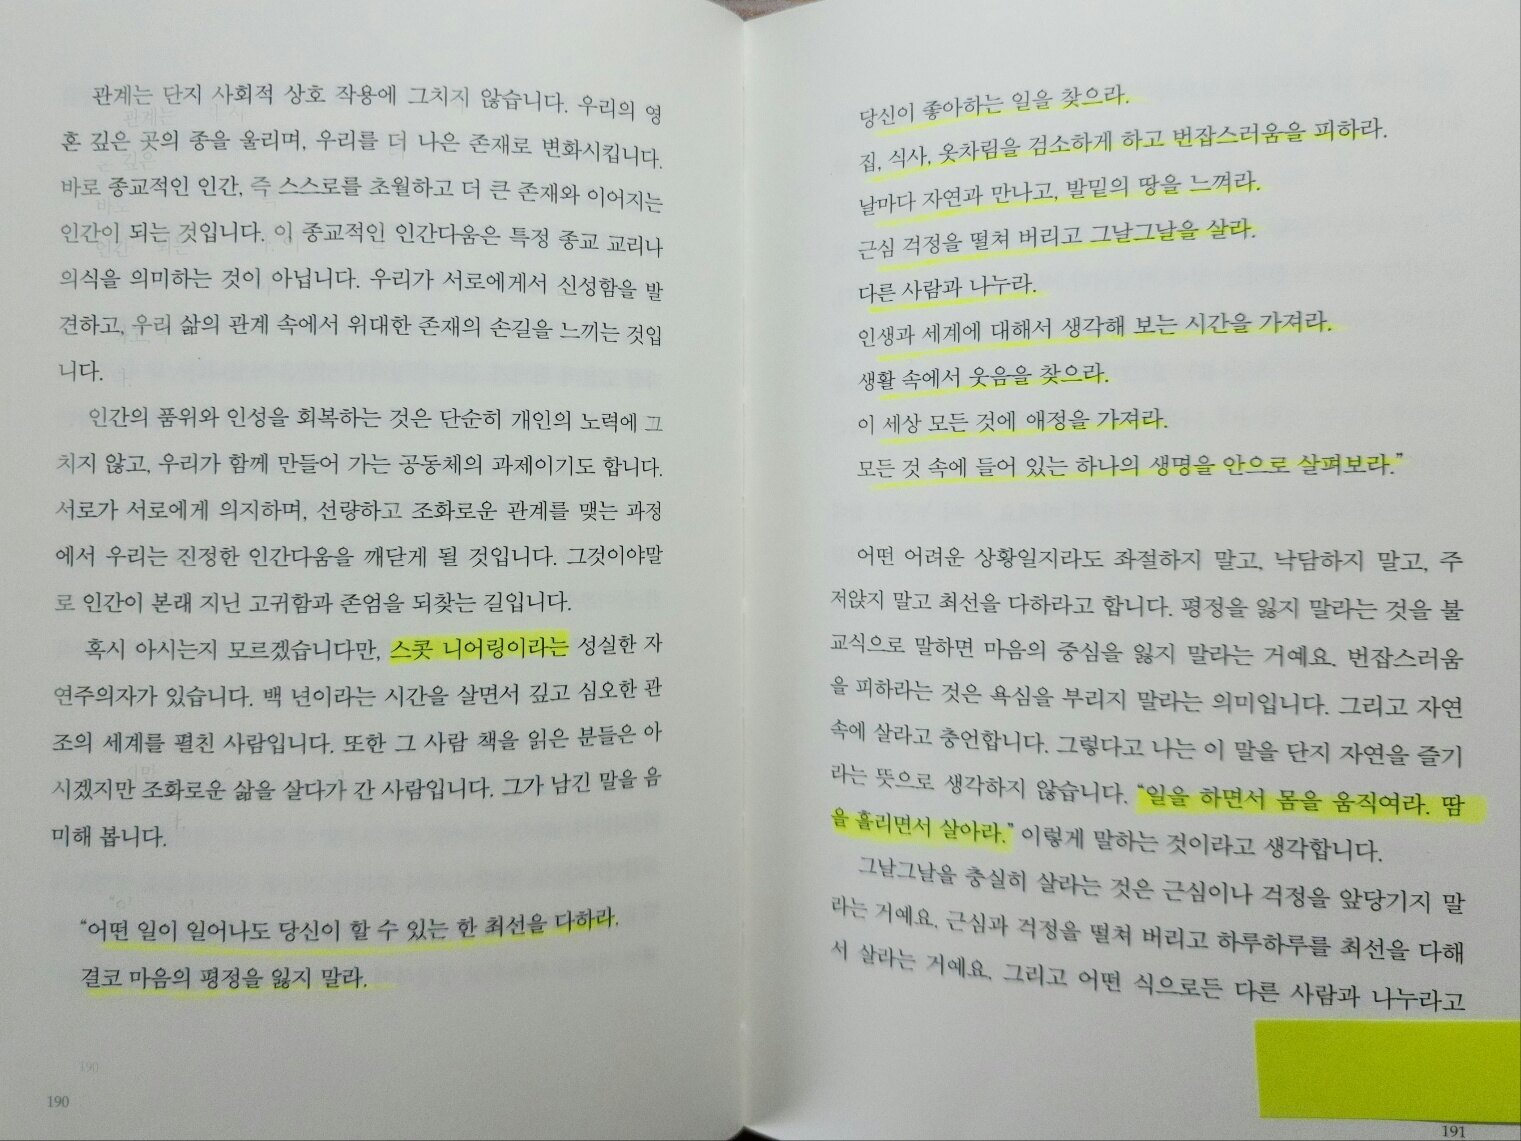 관계는 단지 사회적 상호 작용에 그치지 않습니다. 우리의 영
혼 깊은 곳의 종을 울리며, 우리를 더 나은 존재로 변화시킵니다.
바로 종교적인 인간, 즉 스스로를 초월하고 더 큰 존재와 이어지는
인간이 되는 것입니다. 이 종교적인 인간다움은 특정 종교 교리나
의식을 의미하는 것이 아닙니다. 우리가 서로에게서 신성함을 발
견하고, 우리 삶의 관계 속에서 위대한 존재의 손길을 느끼는 것입
니다.
인간의 품위와 인성을 회복하는 것은 단순히 개인의 노력에 그
치지 않고, 우리가 함께 만들어 가는 공동체의 과제이기도 합니다.
서로가 서로에게 의지하며, 선량하고 조화로운 관계를 맺는 과정
에서 우리는 진정한 인간다움을 깨닫게 될 것입니다. 그것이야말
로 인간이 본래 지닌 고귀함과 존엄을 되찾는 길입니다.
혹시 아시는지 모르겠습니다만, 스콧 니어링이라는 성실한 자
연주의자가 있습니다. 백 년이라는 시간을 살면서 깊고 심오한 관
조의 세계를 펼친 사람입니다. 또한 그 사람 책을 읽은 분들은 아
시겠지만 조화로운 삶을 살다가 간 사람입니다. 그가 남긴 말을 음
미해 봅니다.
“어떤 일이 일어나도 당신이 할 수 있는 한 최선을 다하라.
결코 마음의 평정을 잃지 말라.
190
당신이 좋아하는 일을 찾으라.
집, 식사, 옷차림을 검소하게 하고 번잡스러움을 피하라.
날마다 자연과 만나고, 발밑의 땅을 느껴라.
근심 걱정을 떨쳐 버리고 그날그날을 살라.
다른 사람과 나누라.
인생과 세계에 대해서 생각해 보는 시간을 가져라.
생활 속에서 웃음을 찾으라.
이 세상 모든 것에 애정을 가져라.
모든 것 속에 들어 있는 하나의 생명을 안으로 살펴보라.”
어떤 어려운 상황일지라도 좌절하지 말고, 낙담하지 말고, 주
저앉지 말고 최선을 다하라고 합니다. 평정을 잃지 말라는 것을 불
교식으로 말하면 마음의 중심을 잃지 말라는 거예요. 번잡스러움
을 피하라는 것은 욕심을 부리지 말라는 의미입니다. 그리고 자연
속에 살라고 충언합니다. 그렇다고 나는 이 말을 단지 자연을 즐기
라는 뜻으로 생각하지 않습니다. “일을 하면서 몸을 움직여라. 땀
을 흘리면서 살아라.” 이렇게 말하는 것이라고 생각합니다.
그날그날을 충실히 살라는 것은 근심이나 걱정을 앞당기지 말
라는 거예요. 근심과 걱정을 떨쳐 버리고 하루하루를 최선을 다해
서 살라는 거예요. 그리고 어떤 식으로든 다른 사람과 나누라고
191